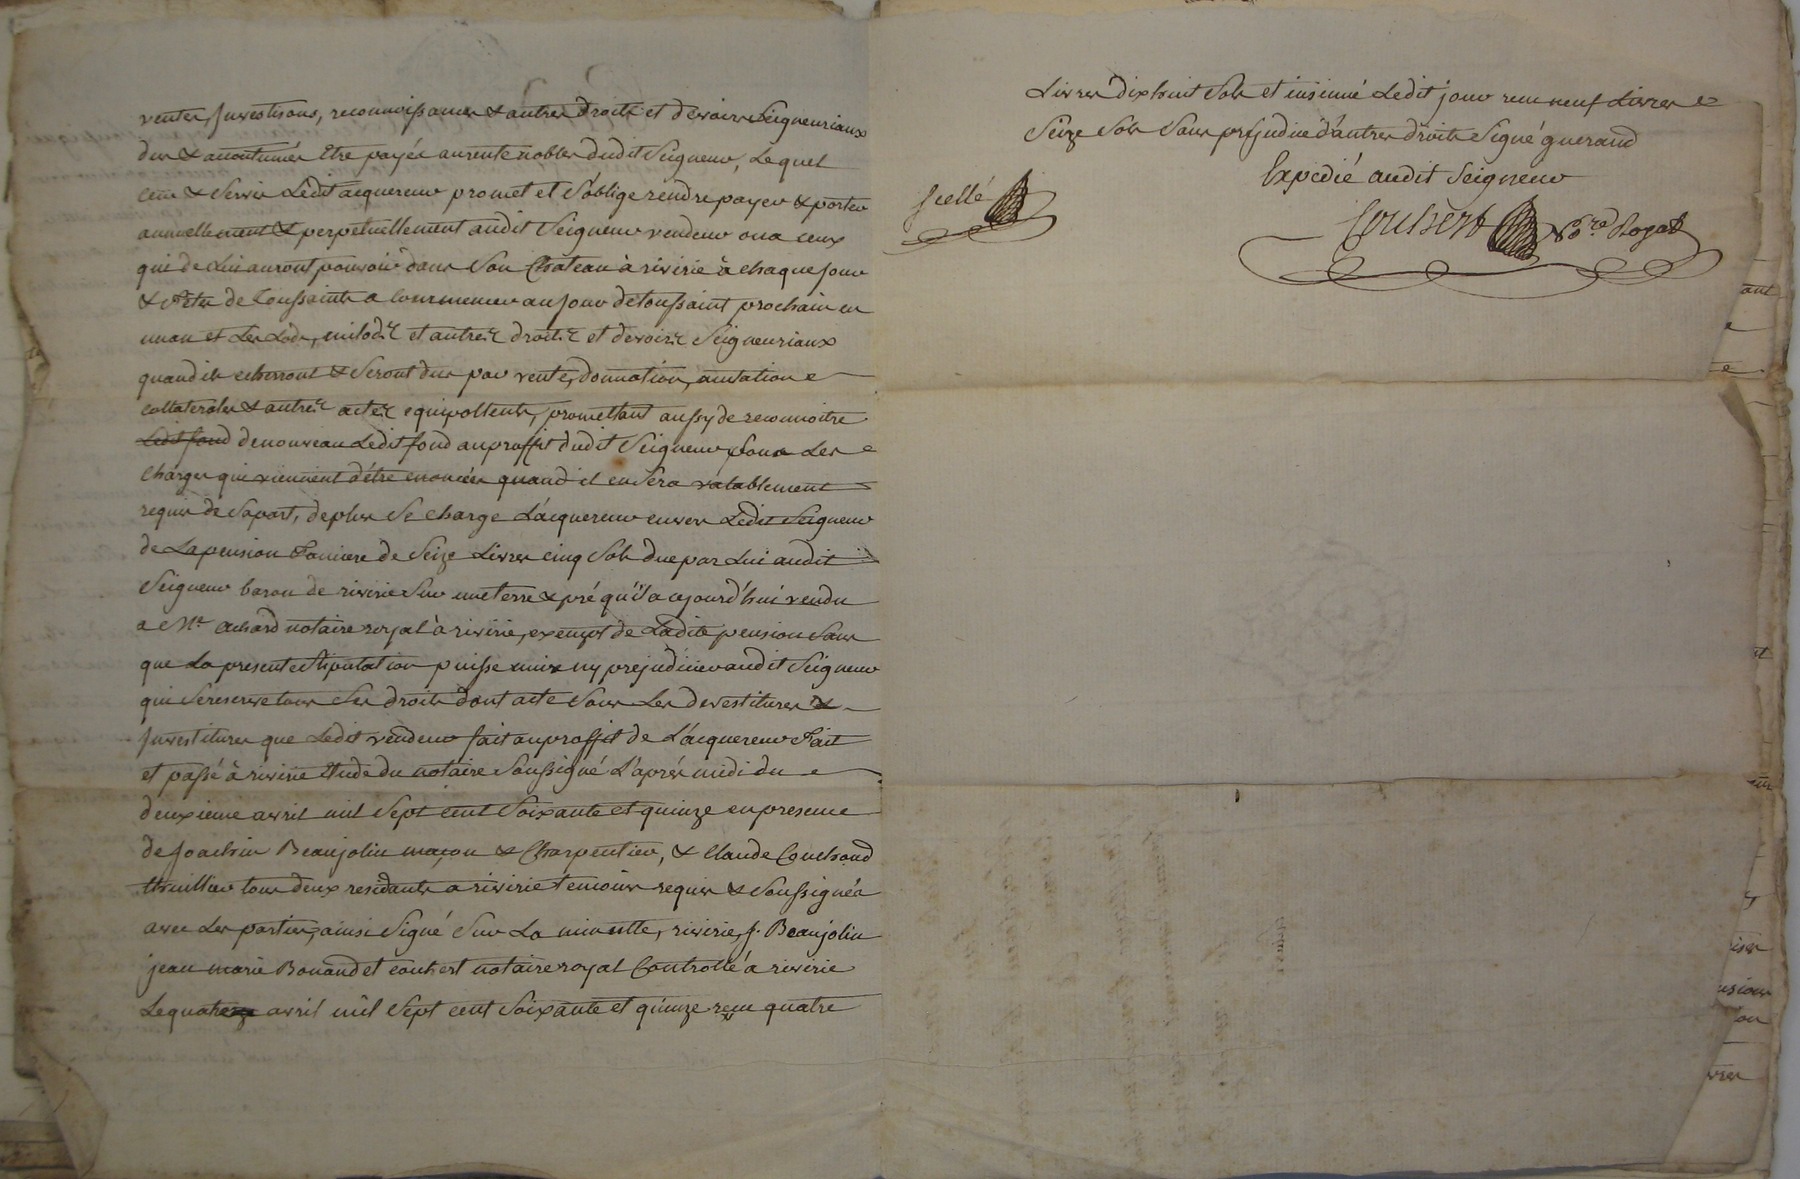 ventes, Investisons, reconnoissances & autres droits et devoirs Seigneuriaux
dus & accoutumés Etre payés aux rente nobles dudit Seigneur, Lequel
cens & Servis Ledit acquereur promet et S'oblige rendre payer & porter
annuellement & perpetuellement audit Seigneur vendeur ou a ceux
qui de Lui auront pouvoir dans Son Chateau à riverie à chaque Jour
& fete de Toussaints a Commencer au Jour de toussaint prochain en
un an et Les Lods, milods et autres droits et devoirs Seigneuriaux
quand ils echerront & Seront dus par vente, donnation, mutation
collaterales & autres actes equipollents, promettant aussy de reconnoitre
Ledit fond de nouveau Ledit fond au proffit dudit Seigneur Sous Les
charges qui viennent d'être enoncées quand il en Sera valablement
requis de Sa part, de plus Se charge L'acquereur envers Ledit Seigneur
de La pension Fonciere de Seize Livres cinq Sols due par Lui audit
Seigneur baron de riverie Sur une terre & pré qu'il a cejourd'hui vendu
a Me. achard notaire royal à riverie, exempt de Ladite pension Sans
que La presente Stipulation puisse nuire ny prejudicier audit Seigneur
qui Se reserve tous Ses droits dont acte Sous Les devestitures &
Investitures que Ledit vendeur fait au proffit de L'acquereur Fait
et passé à riverie Etude du notaire Soussigné L'après midi du
deuxieme avril mil Sept cent Soixante et quinze en presence
de Joachim Beaujolin maçon & Charpentier, & Claude Couchoud
thuillier tous deux residants a riverie témoins requis & Soussignés
avec Les parties, ainsi Signé Sur La minutte, riverie, J. Beaujolin
jean marie Bonand et coubert notaire royal Controllé a riverie
Le quatre avril mil Sept cent Soixante et quinze reçu quatre
Livres dix huit Sols et insinué Ledit jour reçu neuf Livres
Seize Sols Sans prejudice d'autres droits Signé guerand
Expedié audit Seigneur
Scellé
Coubert Nore Royal
ant
e
e
on